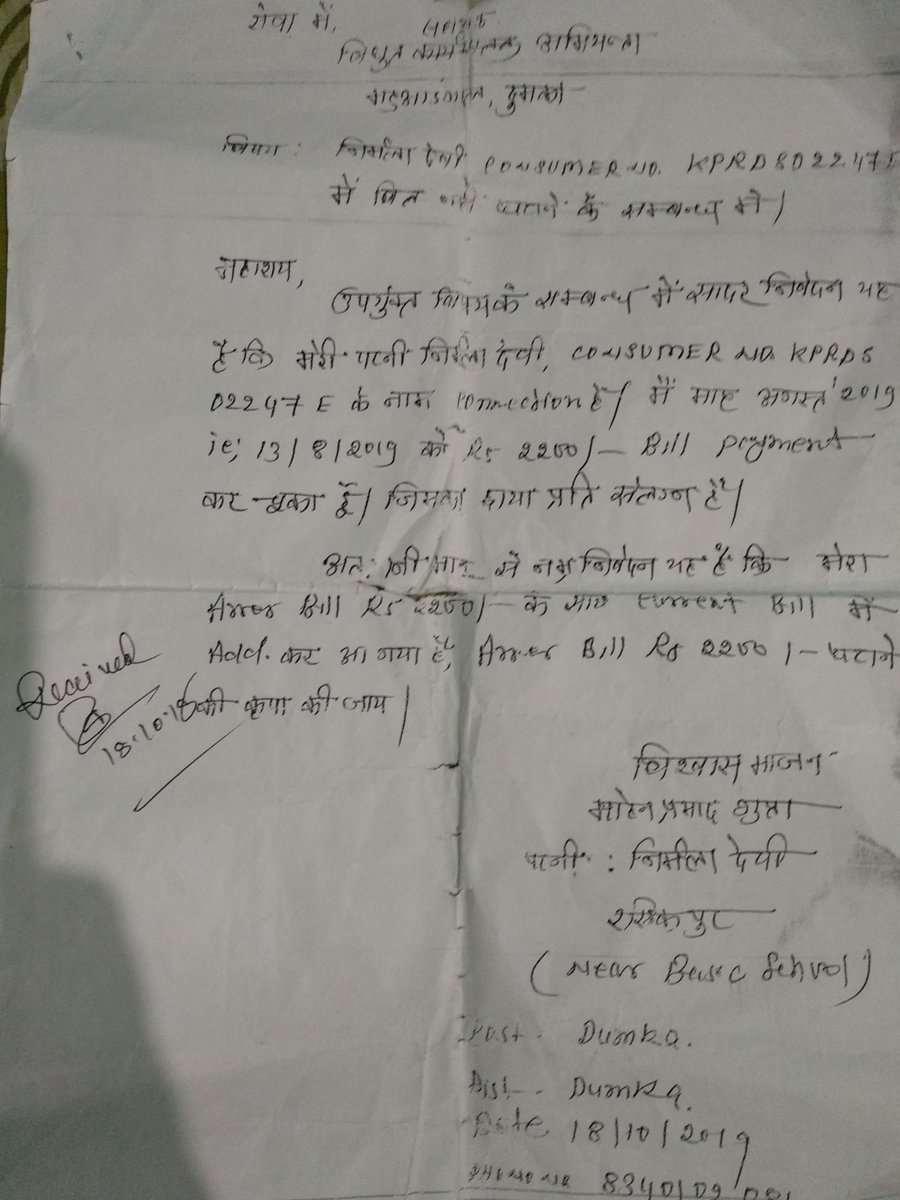 सेवा में,
सहायक
विधुत कार्यपालक अभियन्ता
दुमका
विषय : निर्मला देवी CONSUMER NO. KPRDS022475
में बिल नही घटाने के सम्बन्ध में।
महाशय,
उपर्युक्त विषयके सम्बन्ध में सादर निवेदन यह
है कि मेरी पत्नी निर्मला देवी, CONSUMER NO. KPRDS
02247 E के नाम connection है। मैं माह अगस्त'2019
ie; 13/8/2019 को Rs 2200/- Bill payment
कर चुका हूँ। जिसका छाया प्रति संलग्न है।
अत: श्रीमान् से नम्र निवेदन यह है कि मेरा
Arrer Bill Rs 2200/- के साथ current Bill में
Add. कर आ गया है, Arrer Bill Rs 2200/- घटाने
की कृपा की जाय।
Received
18.10.19
विश्वास भाजन
प्रसाद गुप्ता
पत्नी : निर्मला देवी
रसिकपुर
(Near Basic School)
Post - Dumka.
Dist - Dumka.
Date 18/10/2019
Phone no 8340109